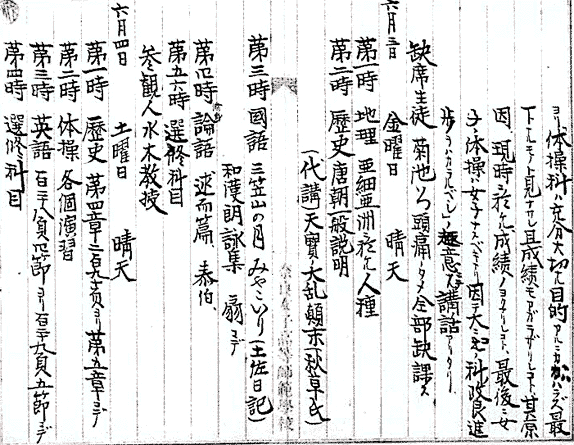 ヨリ体操科ハ充分大切ナル目的アルニカカハラズ最
下ルモノト見ナサル且成績モアガラザリシコト其原
因、現時ニ於ケル成績ノヨカリシコト、最後ニ女
子ノ体操ハ女子ナスベキナリ因テ大ニ此ノ科改良進
歩ヲハカラルベシトノ趣意ナル講話アリタリ
缺席生徒 菊池ハル頭痛ノタメ全部缺課ス
六月三日 金曜日 晴天
第一時 地理 亜細亜洲ニ於ケル人種
第二時 歴史 唐朝一般説明
(代講) 天寳ノ大乱顛末(秋草氏)
第三時 國語 三笠山の月 みやこいり(土佐日記)
和漢朗詠集 扇マデ
第四時 論語 述而篇 泰伯、
第五六時 選修科目
参観人 水木教授
六月四日 土曜日 晴天
第一時 歴史 第四章二頁ヨリ第五章マデ
第二時 体操 各個演習
第三時 英語 百三十八頁四節ヨリ百三十九頁五節マデ
第四時 選修科目
奈良女子高等師範學校